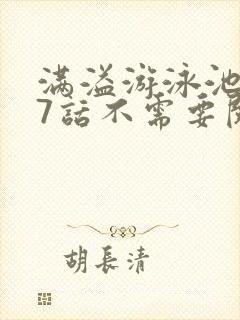 满溢游泳池
7話不需要
胡長清